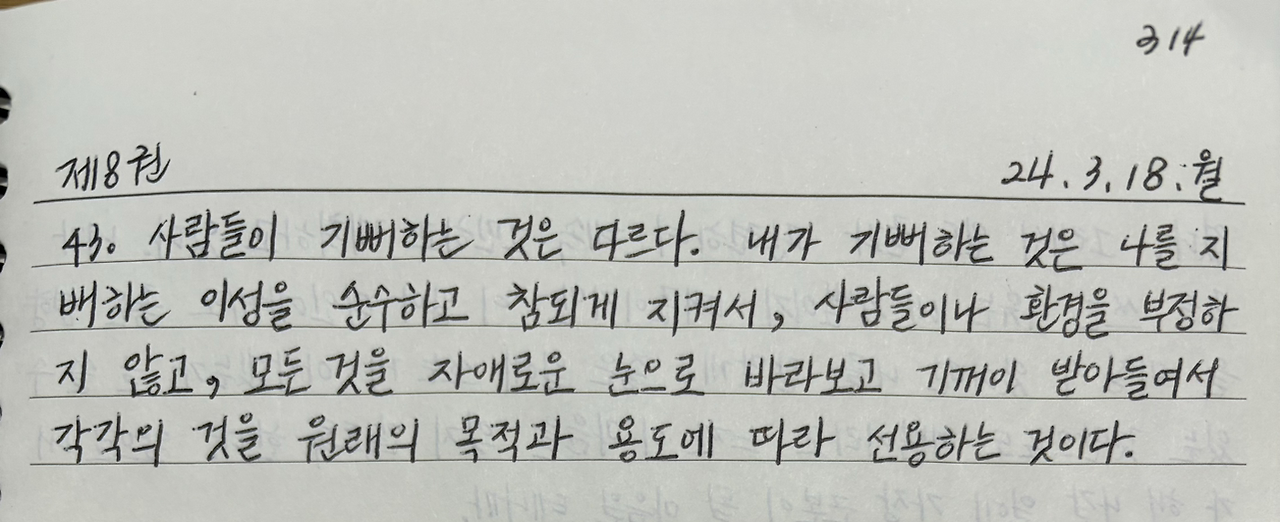 314
제8권 24.3.18.월
43. 사람들이 기뻐하는 것은 다르다. 내가 기뻐하는 것은 나를 지
배하는 이성을 순수하고 참되게 지켜서, 사람들이나 환경을 부정하
지 않고, 모든 것을 자애로운 눈으로 바라보고 기꺼이 받아들여서
각각의 것을 원래의 목적과 용도에 따라 선용하는 것이다.